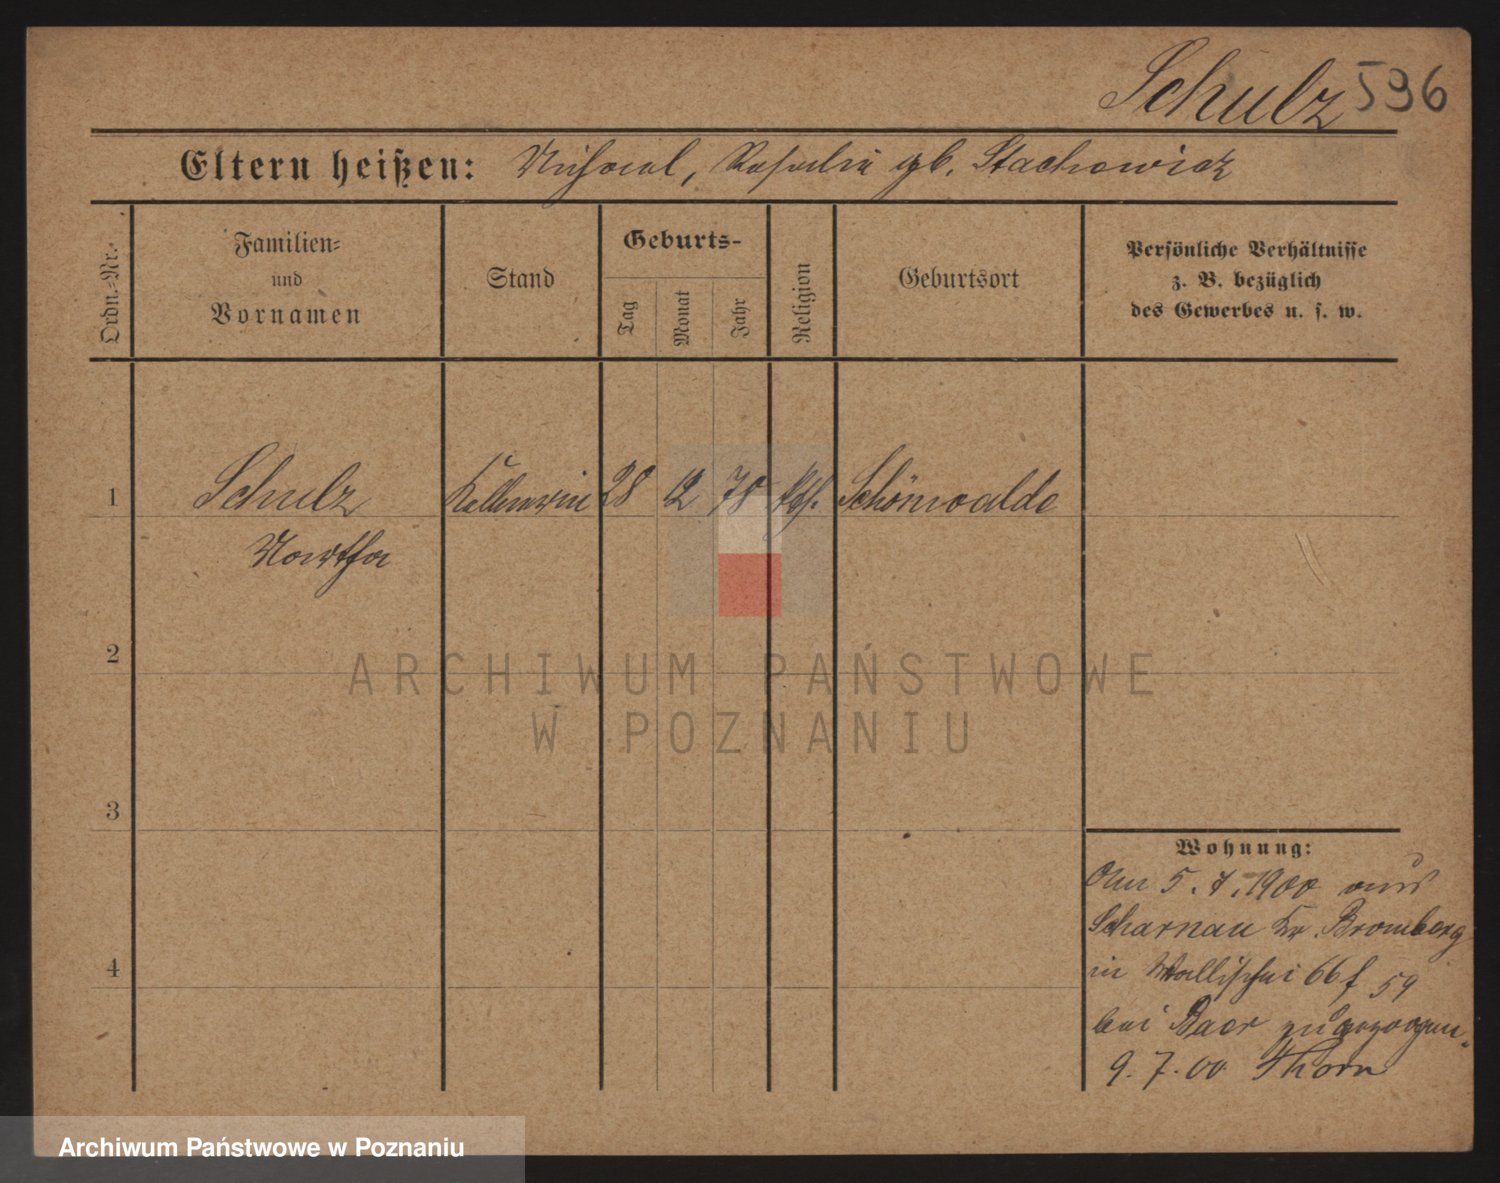 Schulz 596
Eltern heißen: Michael, Rosalie gb. Stachowicz
Ordn.-Nr.
Familien-
und
Vornamen
Stand
Geburts-
Tag
Monat
Jahr
Religion
Geburtsort
Persönliche Verhältnisse
z. B. bezüglich
des Gewerbes u. s. w.
1 Schulz Kellnerin 28 12 78 Schönwalde
Martha
2
3
4
Wohnung:
Am 5. 7. 1900 aus
Scharnau Kr. Bromberg
in Wallischei 66/59
bei Baer zugezogen.
9. 7. 00 Thorn
ARCHIWUM PAŃSTWOWE
W POZNANIU
Archiwum Państwowe w Poznaniu